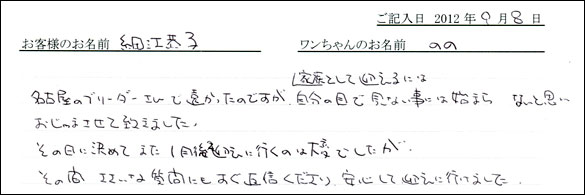 ご記入日 2012年9月8日
お客様のお名前 細江恭子 ワンちゃんのお名前 のの
家族として迎えるには
名古屋のブリーダーさんで遠かったのですが、自分の目で見ない事には始まらないと思い
おじゃまさせて頂きました。
その日に決めてまた1ヶ月後迎えに行くのは大変でしたが
その間 ささいな質問にもすぐ返信くださり、安心して迎えに行けました。